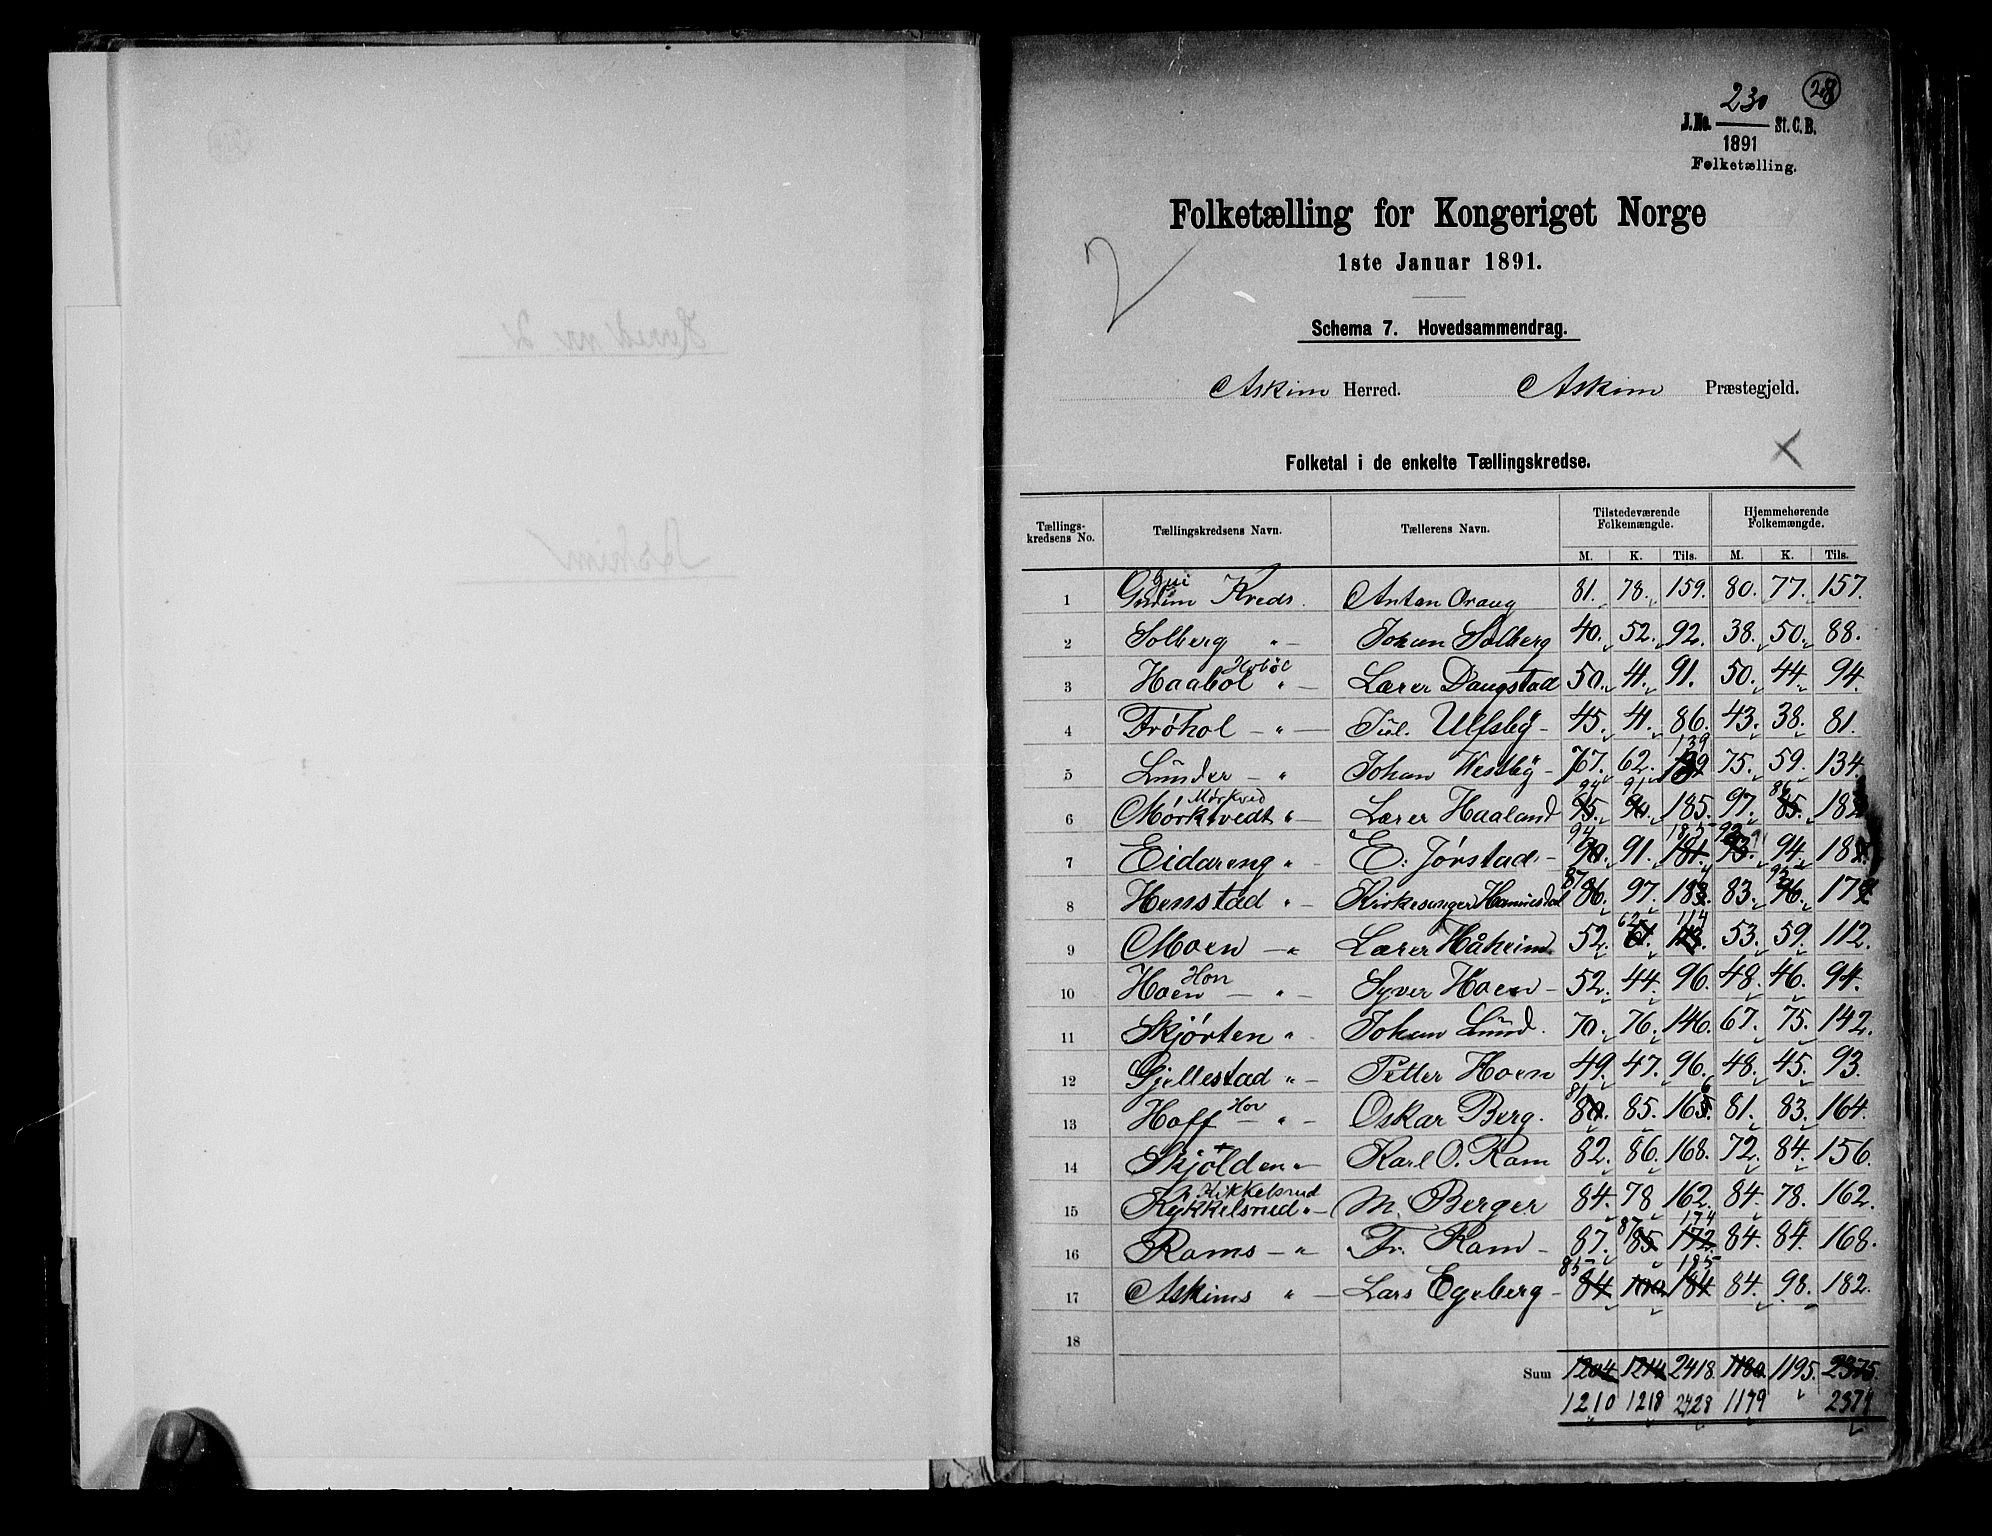 28
J.No. 230 St. C. B.
1891
Folketælling.
Folketælling for Kongeriget Norge
2
1ste Januar 1891.
Schema 7. Hovedsammendrag.
Askim Herred. Askim Præstegjeld.
Folketal i de enkelte Tællingskredse.
Tællings-kredsens No. Tællingskredsens Navn. Tællerens Navn. Tilstedeværende Folkemængde. Hjemmehørende Folkemængde.
M. K. Tils. M. K. Tils.
1 Kreds. Anton Oraug 81. 78. 159. 80. 77. 157.
2 Solberg " Johan Solberg 40. 52. 92. 38. 50. 88.
Hobøl
3 Haabøl " Lærer Daugstad 50. 41. 91. 50. 44. 94.
4 Frøhol " Jul. Ulfsby 45. 41. 86. 43. 38. 81.
139
5 Lunder " Johan Westby 77. 62. 75. 59. 134.
Mørkved 94 91 86
6 Mørkvedt " Lærer Haaland 95. 90. 185. 97. 85. 183
94 185 92
7 Eidareng " E. Jørstad 90. 91. 181. 93. 94. 18
87 4 92
8 Henstad " Kirkesanger 86. 97. 183. 83. 96. 17
62 114
9 Moen " Lærer Håheim 52. 61. 113. 53. 59. 112.
Hon
10 Hoen " Syver Hoen 52. 44. 96. 48. 46. 94.
11 Skjørten " Johan Lund. 70. 76. 146. 67. 75. 142.
12 Gjellestad " Petter Hoen 49. 47. 96. 48. 45. 93.
Hov 81 6
13 Hoff " Oskar Berg. 80. 85. 165. 81. 83. 164.
14 Skjølden " Karl O. Ram 82. 86. 168. 72. 84. 156.
Kikkelsrud
15 Kykkelsrud " M. Berger 84. 78 162. 84. 78. 162.
87 174
16 Rams " Fr. Ram 87. 85 172. 84. 84. 168.
85 185
17 Askims " Lars Egeberg 84 100 184 84. 98. 182.
18
Sum 1204 1214 2418 1180 1195. 2375.
1210 1218 2428 1179 2374
Herred nr 2
Askim